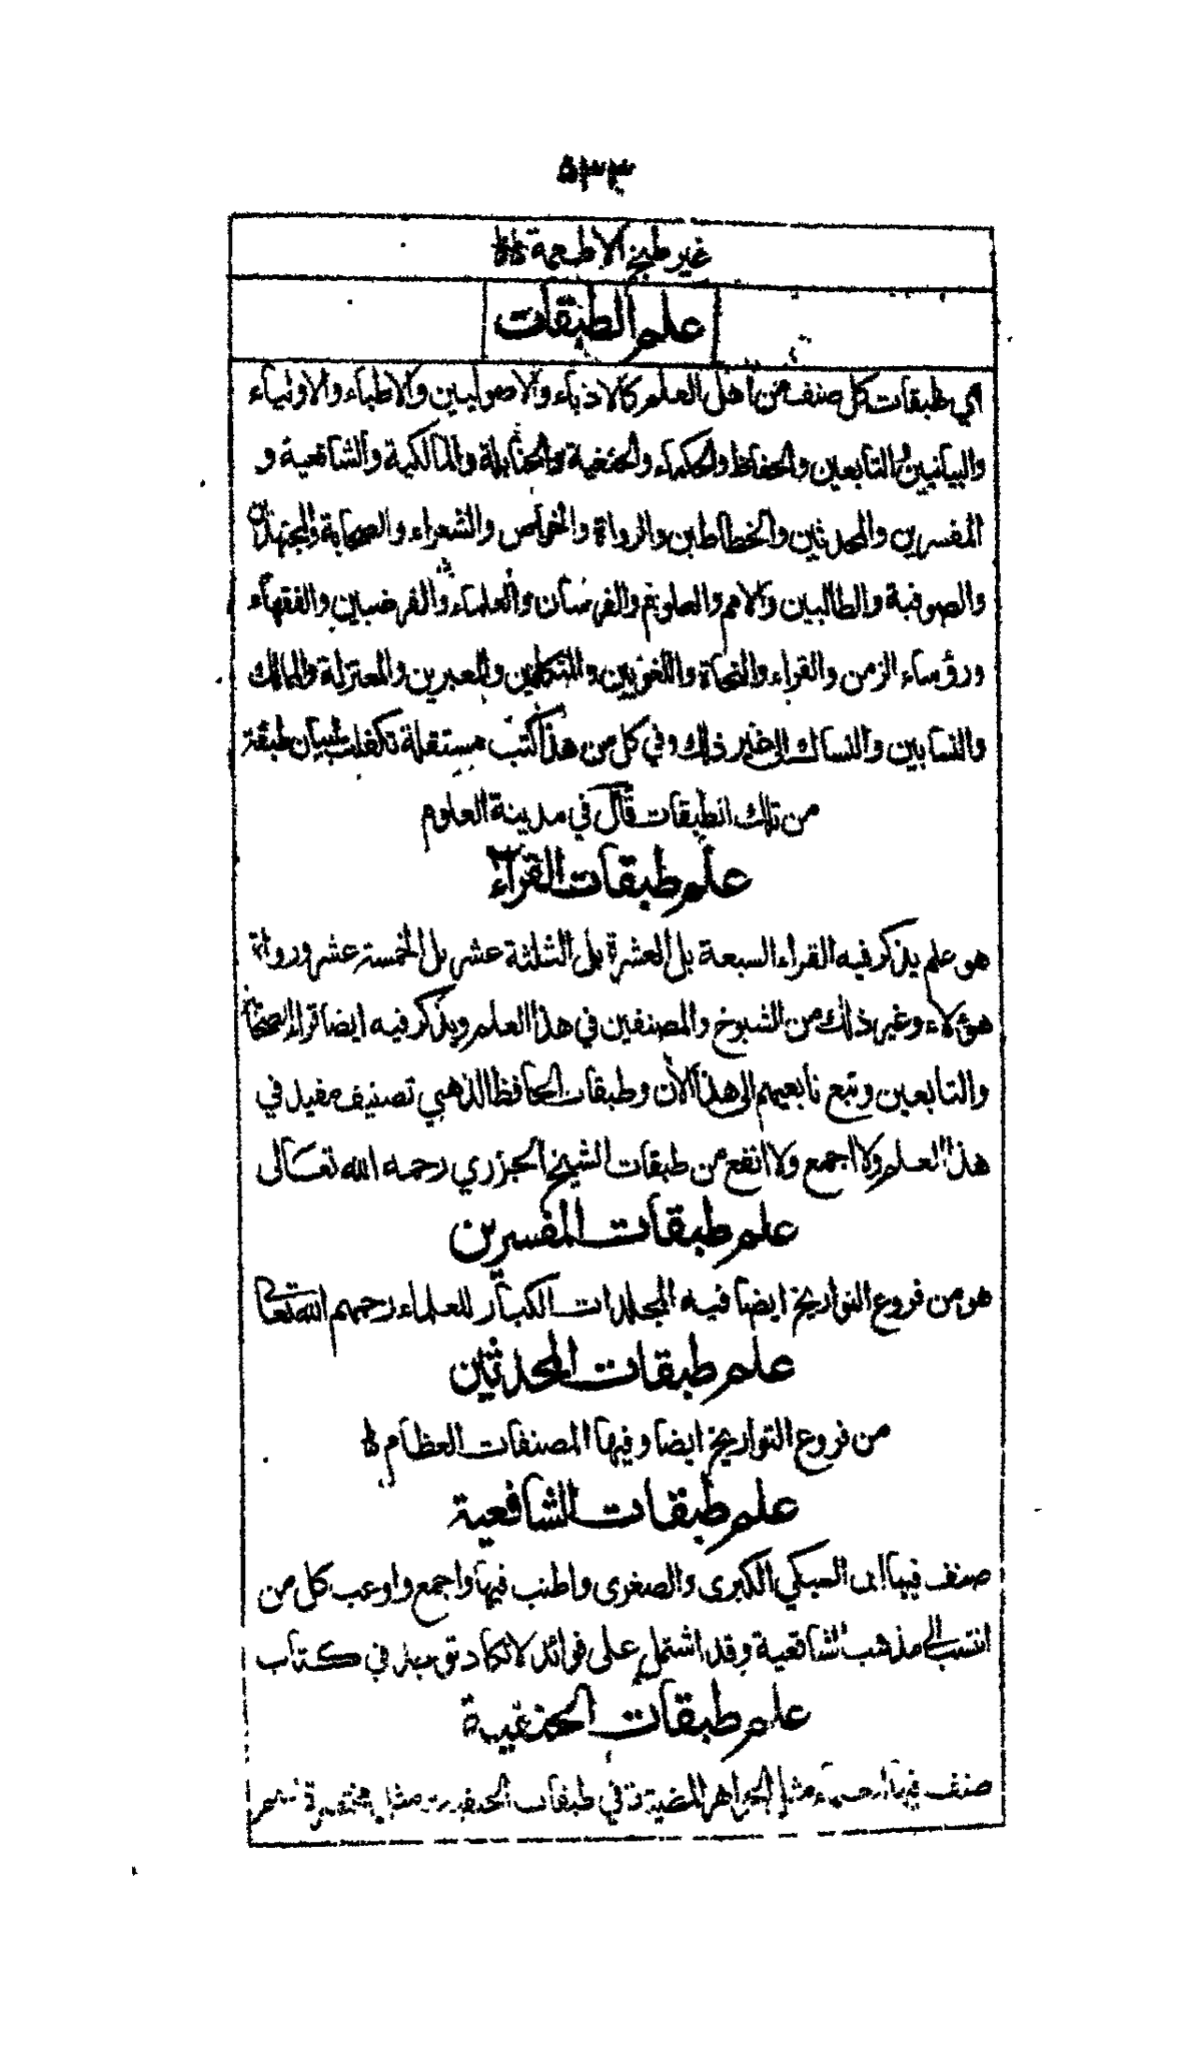 ٥٣٣
غير طبخ الاطعمة
علم الطبقات
اي طبقات كل صنف من اهل العلم كالادباء والاصوليين والاطباء والاولياء
والبيانيين والتابعين والحفاظ والحكماء والحنفية والحنابلة والمالكية والشافعية و
المفسرين والمحدثين والخطاطين والرواة والخواص والشعراء والصحابة والمجتهدين
والصوفية والطالبين والامم والعلوم والفرسان والعلماء والفرضيين والفقهاء
ورؤساء الزمن والقراء والنحاة واللغويين والمتكلمين والمعبرين والمعتزلة والممالك
والنسابين والنساك الى غير ذلك وفي كل من هذا كتب مستقلة تكفلت بيان طبقة
من تلك الطبقات قال في مدينة العلوم
علم طبقات القراء
هو علم يذكر فيه القراء السبعة بل العشرة بل الثلثة عشر بل الخمسة عشر ورواة
هؤلاء وغير ذلك من الشيوخ والمصنفين في هذا العلم ويذكر فيه ايضا قراء الصحابة
والتابعين وتبع تابعيهم الى هذا الآن وطبقات الحافظ الذهبي تصنيف مفيد في
هذا العلم ولا اجمع ولا انفع من طبقات الشيخ الجزري رحمه الله تعالى
علم طبقات المفسرين
هو من فروع التواريخ ايضا فيه المجلدات الكبار للعلماء رحمهم الله تعالى
علم طبقات المحدثين
من فروع التواريخ ايضا وفيها المصنفات العظام
علم طبقات الشافعية
صنف فيها ابن السبكي الكبرى والصغرى واطنب فيها واجمع واوعب كل من
انتسب الى مذهب الشافعية وقد اشتمل على فوائد لا تكاد توجد في كتاب
علم طبقات الحنفية
صنف فيها مثل الجواهر المضية في طبقات الحنفية ومثل مختصرة